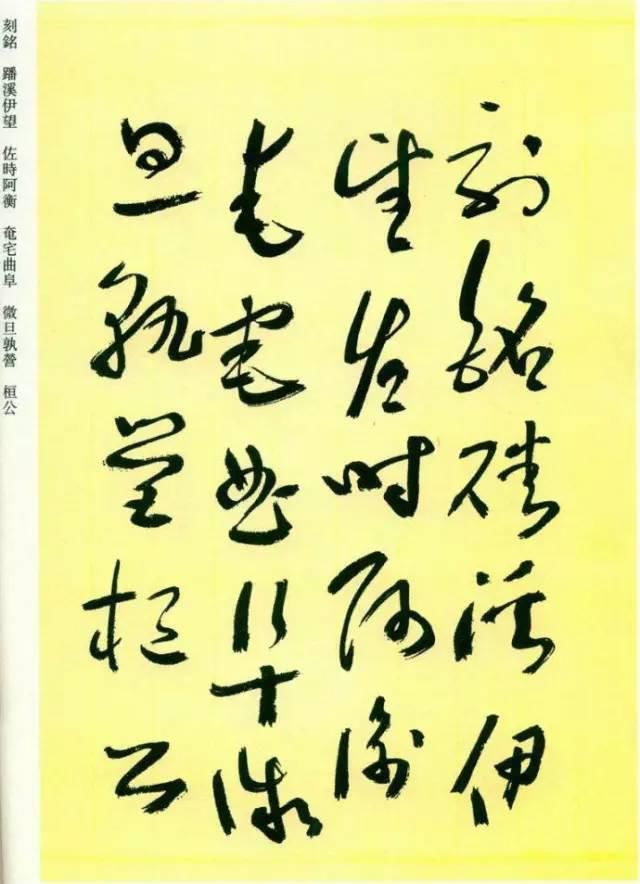 刻銘磻溪伊
望佐時阿衡
奄宅曲阜微
旦孰營桓公
刻銘　蹯溪伊望　佐時阿衡　奄宅曲阜　微旦孰營　桓公